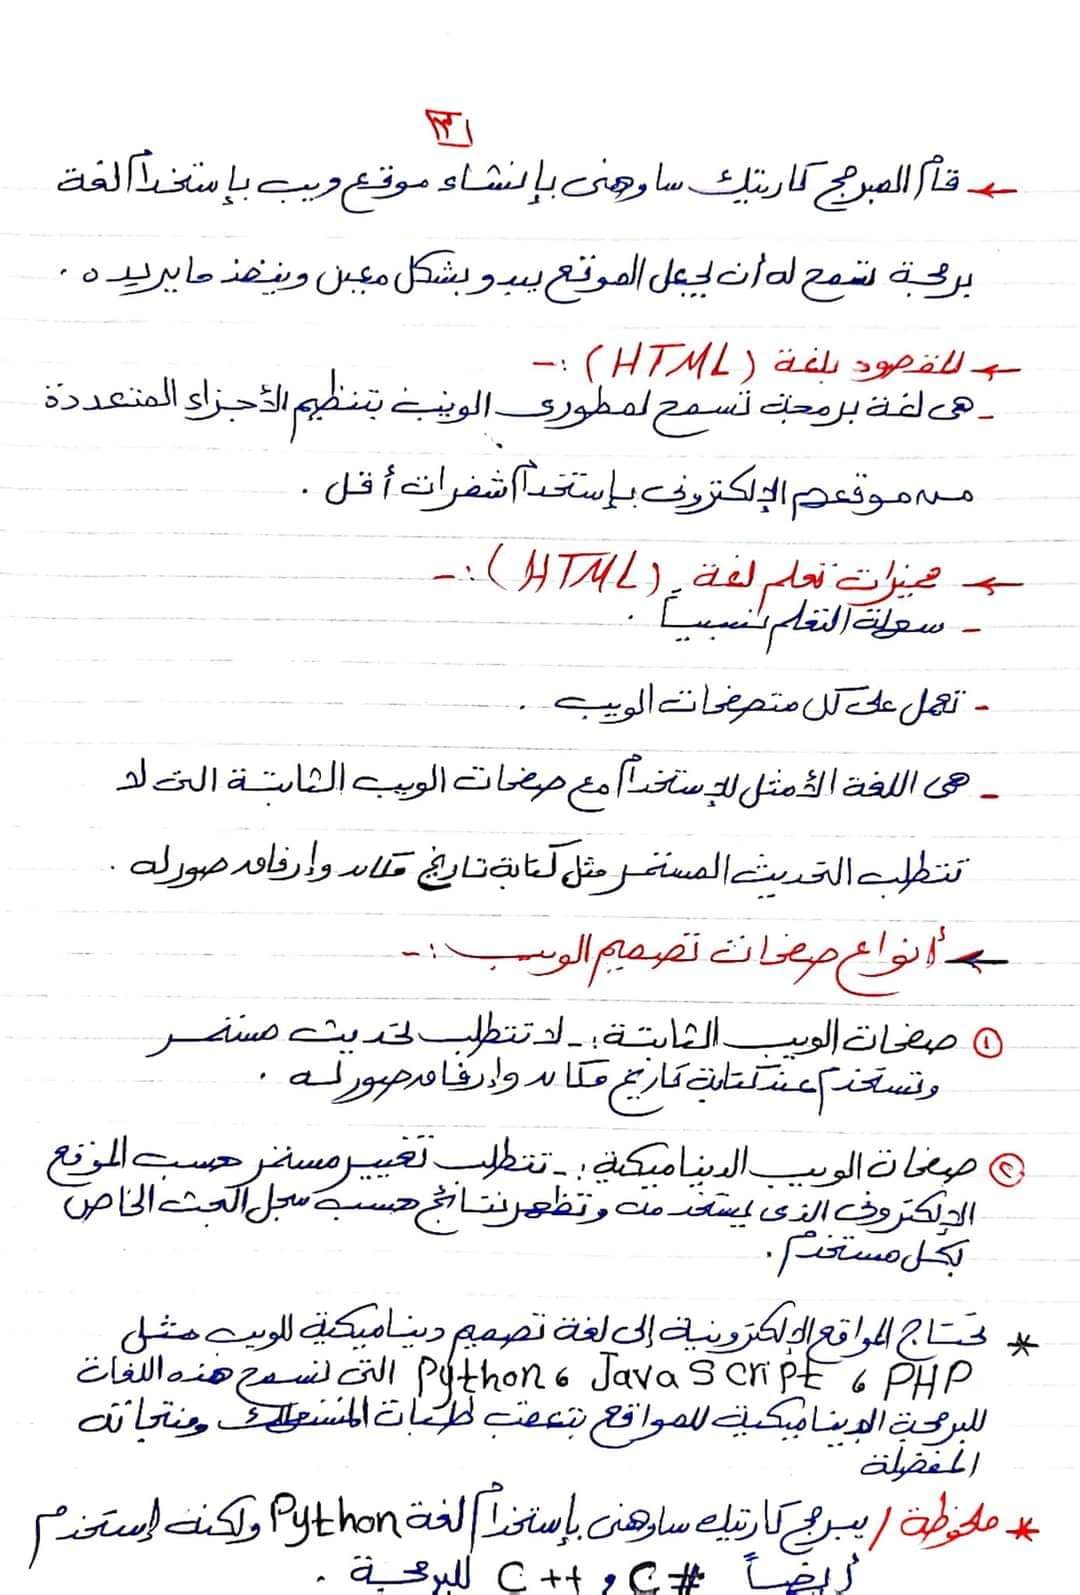 ٣١
← قام المبرمج كارتيك ساوهنى بإنشاء موقع ويب بإستخدام لغة
برمجة تسمح له أن يجعل الموقع يبدو بشكل معين وينفذ ما يريده .
← المقصود بلغة (HTML) :-
- هى لغة برمجة تسمح لمطورى الويب بتنظيم الأجزاء المتعددة
من موقعهم الإلكترونى بإستخدام شفرات أقل .
← مميزات تعلم لغة (HTML) :-
- سهلة التعلم نسبياً .
- تعمل على كل متصفحات الويب .
- هى اللغة الأمثل للإستخدام مع صفحات الويب الثابتة التى لا
تتطلب التحديث المستمر مثل كتابة تاريخ مكان وإرفاق صور له .
← أنواع صفحات تصميم الويب :-
① صفحات الويب الثابتة :- لا تتطلب تحديث مستمر
وتستخدم عند كتابة تاريخ مكان وإرفاق صور له .
② صفحات الويب الديناميكية :- تتطلب تغيير مستمر حسب الموقع
الإلكترونى الذى يستخدمه وتظهر نتائج حسب سجل البحث الخاص
بكل مستخدم .
* تحتاج المواقع الإلكترونية إلى لغة تصميم ديناميكية للويب مثل
PHP ، JavaScript ، Python التى تسمح هذه اللغات
للبرمجة الديناميكية للمواقع بتعقب طلبات المستهلك ومنتجاته
المفضلة
* ملحوظة / يبرمج كارتيك ساوهنى بإستخدام لغة Python ولكنه إستخدم
أيضاً C# و C++ للبرمجة .